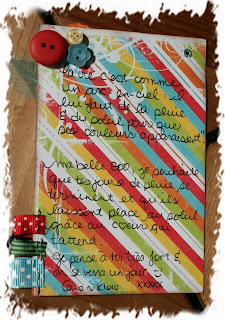 "La vie c'est comme
un arc-en-ciel : il
lui faut de la pluie
& du soleil pour que
ses couleurs apparaissent"
ma belle Boo, je souhaite
que tes jours de pluie se
terminent et qu'ils
laissent place au soleil
grâce au coeur qui
t'attend.
Je pense à toi très fort &
on se verra un jour
xxxxx